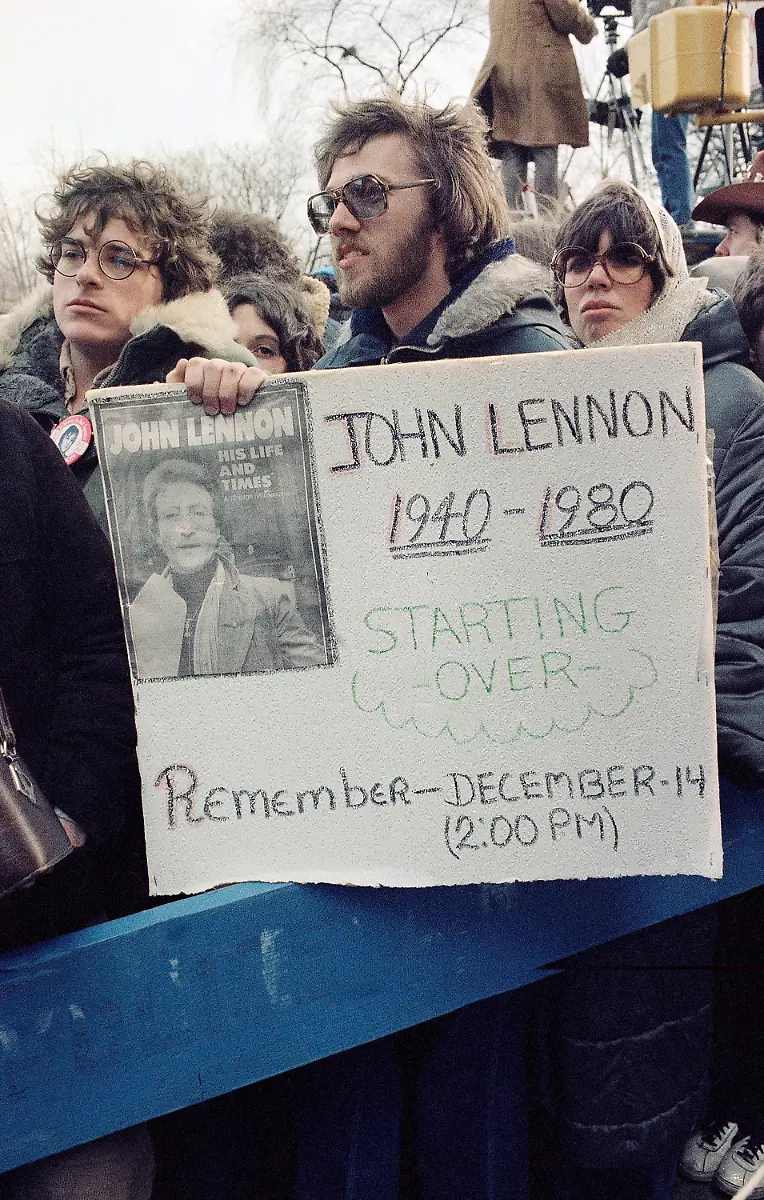 JOHN LENNON
HIS LIFE
AND
TIMES
JOHN LENNON
1940-1980
STARTING
-OVER-
Remember-DECEMBER-14
(2:00 PM)